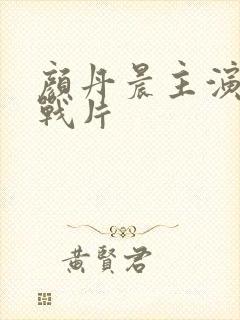 顔丹晨主演
戰片
黃賢君